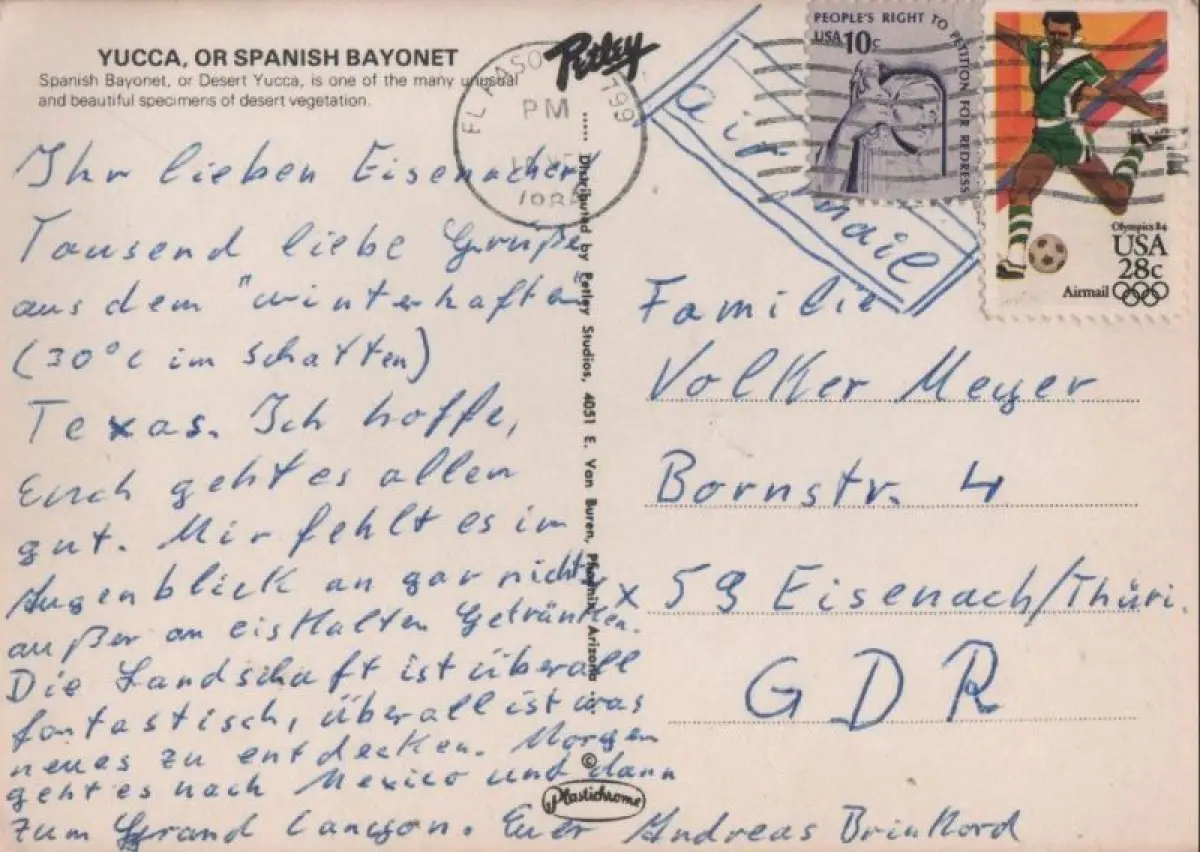 YUCCA, OR SPANISH BAYONET
Spanish Bayonet, or Desert Yucca, is one of the many unusual
and beautiful specimens of desert vegetation.
Petley
PM
799
PEOPLE'S RIGHT TO PETITION FOR REDRESS
USA 10c
Olympics 84
USA
28c
Airmail
air mail
Ihr lieben Eisenacher!
Tausend liebe Grüße
aus dem "winterhaften
(30°C im Schatten)
Texas. Ich hoffe,
Euch geht es allen
gut. Mir fehlt es im
Augenblick an gar nichts,
außer an eiskalten Getränken.
Die Landschaft ist überall
fantastisch, überall ist was
neues zu entdecken. Morgen
geht es nach Mexico und dann
zum Grand Canyon. Euer Andreas Brinkord
..... Distributed by Petley Studios, 4051 E. Van Buren, Phoenix, Arizona
©
Plastichrome
Familie
Volker Meyer
Bornstr. 4
x 59 Eisenach/Thüri.
GDR